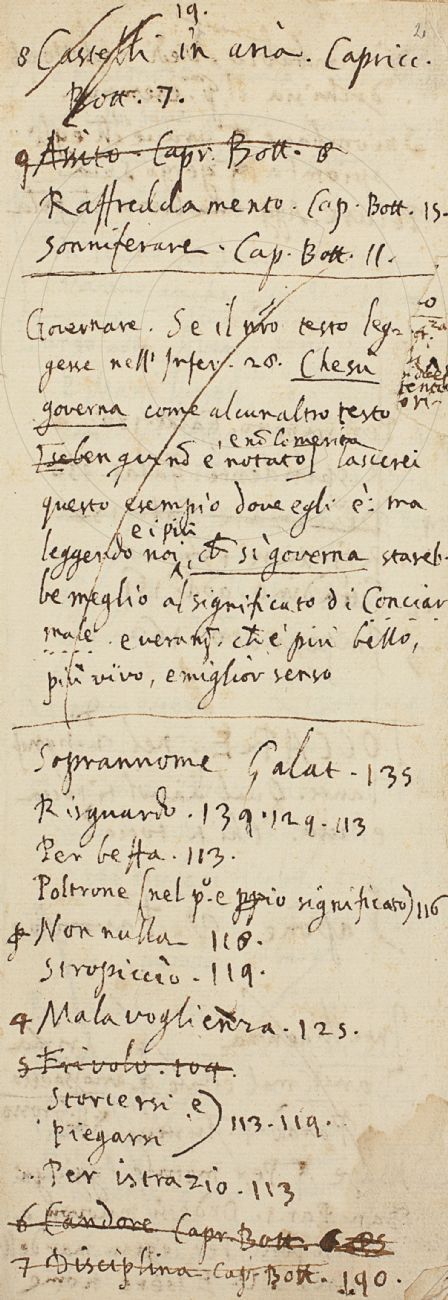 19.
8 Castelli in aria. Capricc.
Bott. 7.
9 Anito. Capr. Bott. 8
Raffreddamento. Cap. Bott. 15.
Sonniferare. Cap. Bott. 11.
Governare. Se il nr̃o testo leg-
gesse nell' Infer. 28. Chesù
governa come alcun altro testo
e nõ lo merita
Esebben quivi è notato] lascerei
questo esempio dove egli è: ma
e i più
leggendo noi, ch̃ sì governa stareb-
be meglio al significato di Conciar
male. e ch̃ è più bello,
più vivo, e miglior senso
Soprannome Galat. 135
Risguardo. 139. 129. 113
Per beffa. 113.
Poltrone (nel p.º e ppio significato) 116
Non nulla 118.
Stropiccio. 119.
4 Malavoglienza. 125.
5 Frivolo. 104.
Storcersi e
Piegarsi ) 113. 119.
Per istrazio. 113
6 Candore Capr. Bott.
7 Disciplina Cap. Bott. 190.